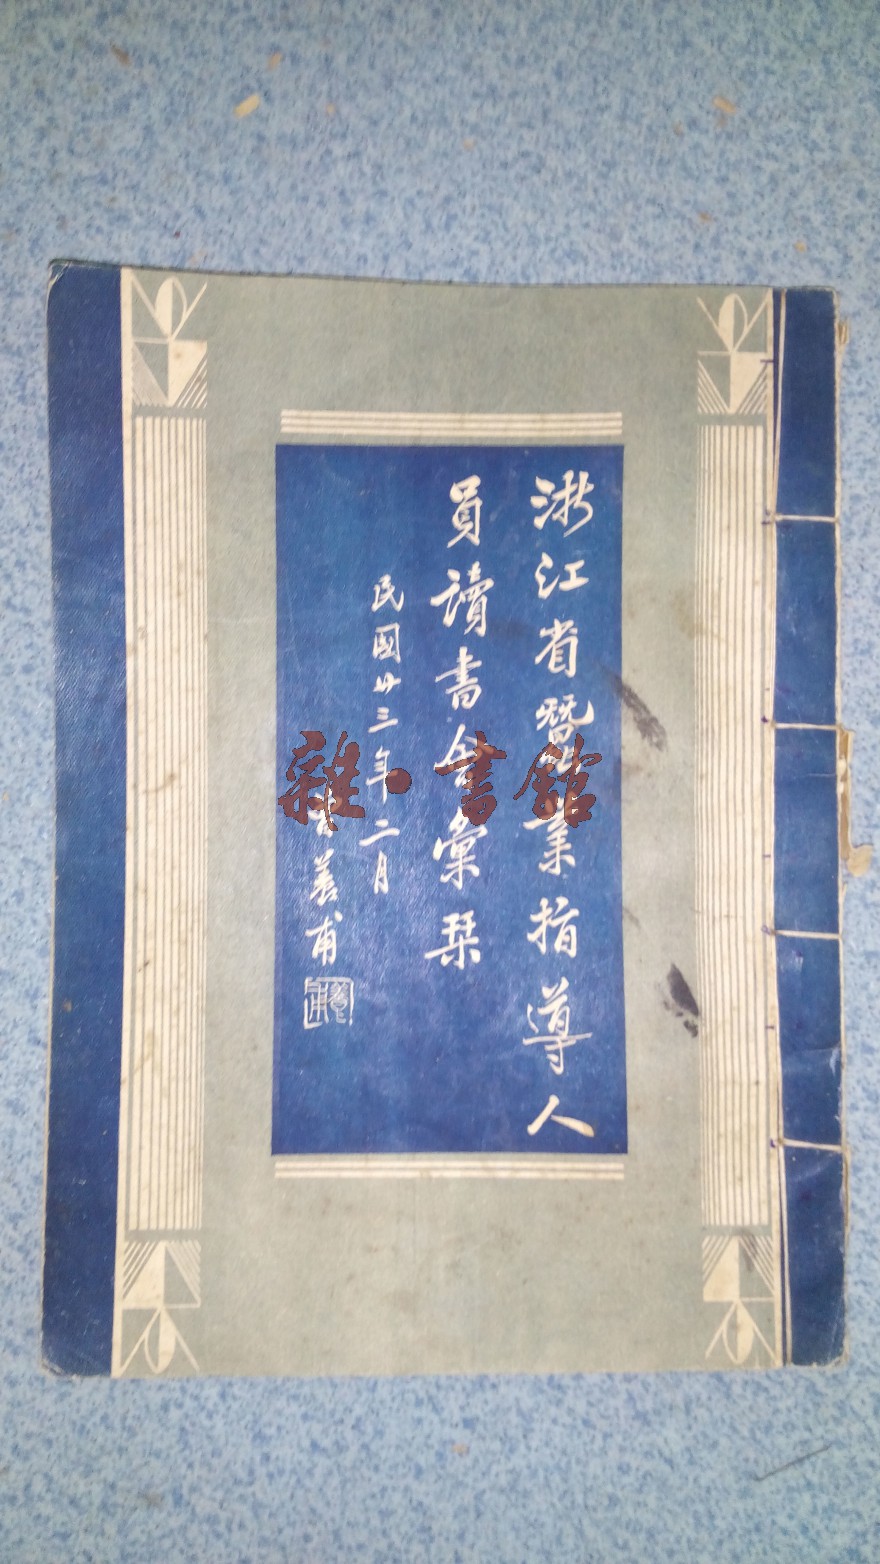 浙江省蠶業指導人
員讀書會彙栞
民國廿三年二月
曾養甫
雜·書館